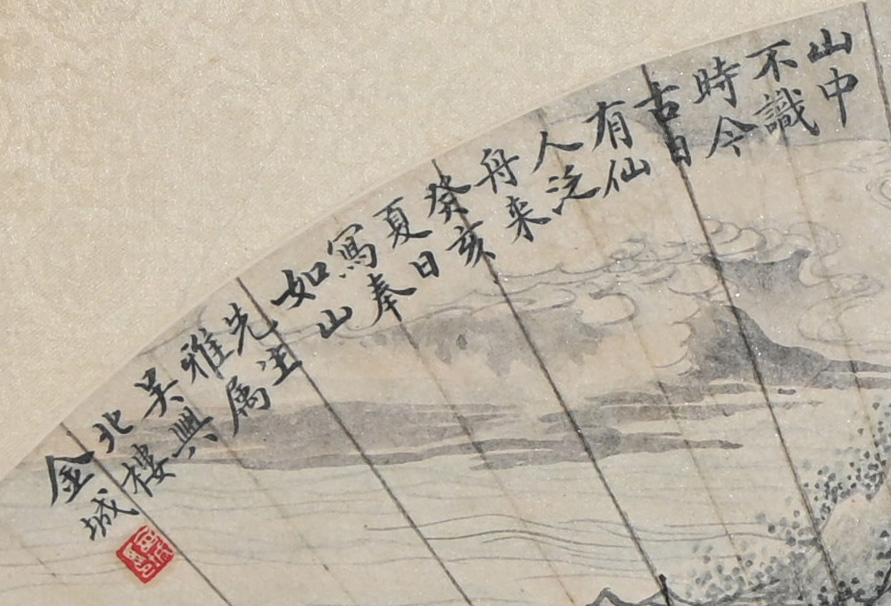 山中
不識
時今
古日
有仙
人泛
舟来
癸亥
夏日
寫奉
如山
先生
雅属
吴興
北樓
金城